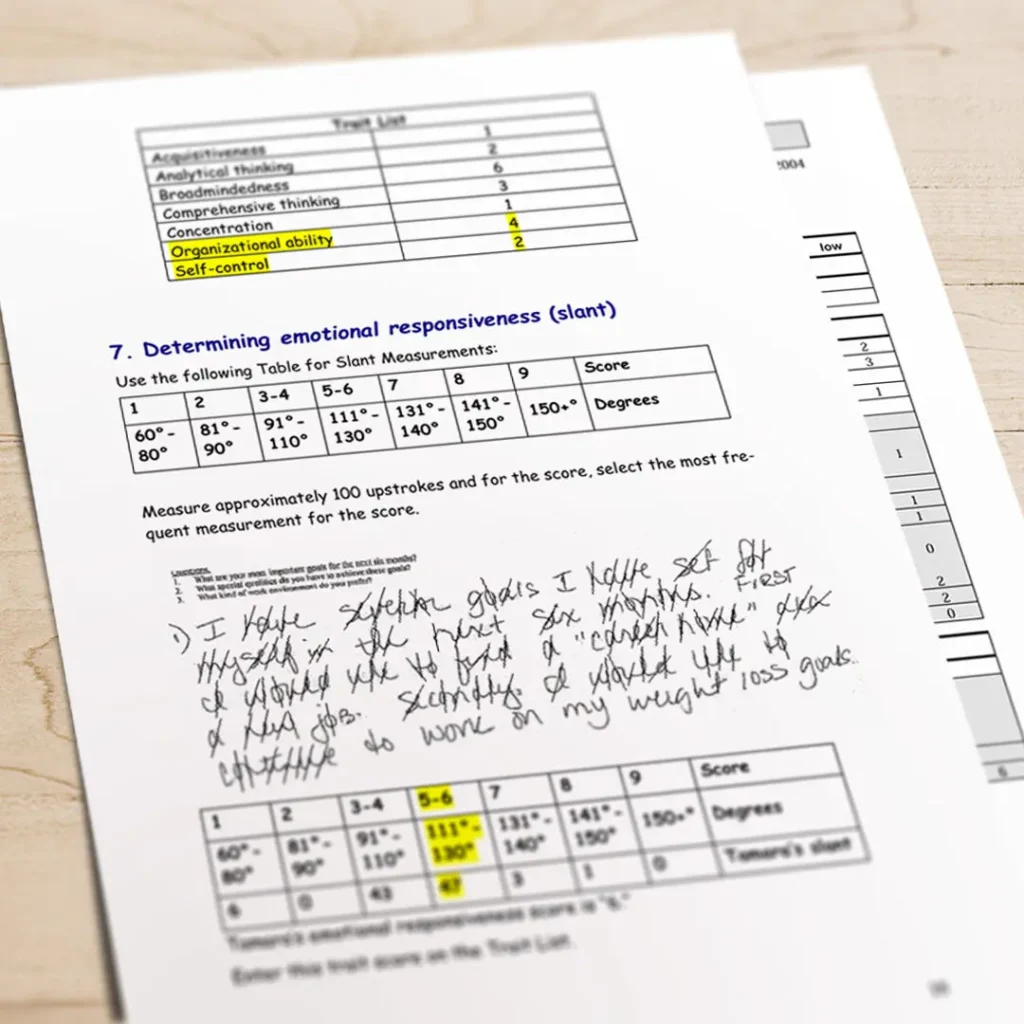 Trait List
Acquisitiveness 1
Analytical thinking 2
Broadmindedness 6
Comprehensive thinking 3
Concentration 1
Organizational ability 4
Self-control 2
7. Determining emotional responsiveness (slant)
Use the following Table for Slant Measurements:
1 2 3-4 5-6 7 8 9 Score
60°- 81°- 91°- 111°- 131°- 141°- 150+° Degrees
80° 90° 110° 130° 140° 150°
Measure approximately 100 upstrokes and for the score, select the most fre-
quent measurement for the score.
1. What are your most important goals for the next six months?
2. What special qualities do you have to achieve these goals?
3. What kind of work environment do you prefer?
1) I have several goals I have set for
myself in the next six months. FIRST
I would like to find a "career home"
a new job. Secondly, I would like to
continue to work on my weight loss goals.
1 2 3-4 5-6 7 8 9 Score
60°- 81°- 91°- 111°- 131°- 141°- 150+° Degrees
80° 90° 110° 130° 140° 150°
6 0 43 47 3 1 0 Tamara's slant
Tamara's emotional responsiveness score is "6."
Enter this trait score on the Trait List.
2004
low
2
3
1
1
1
1
0
2
2
0
6